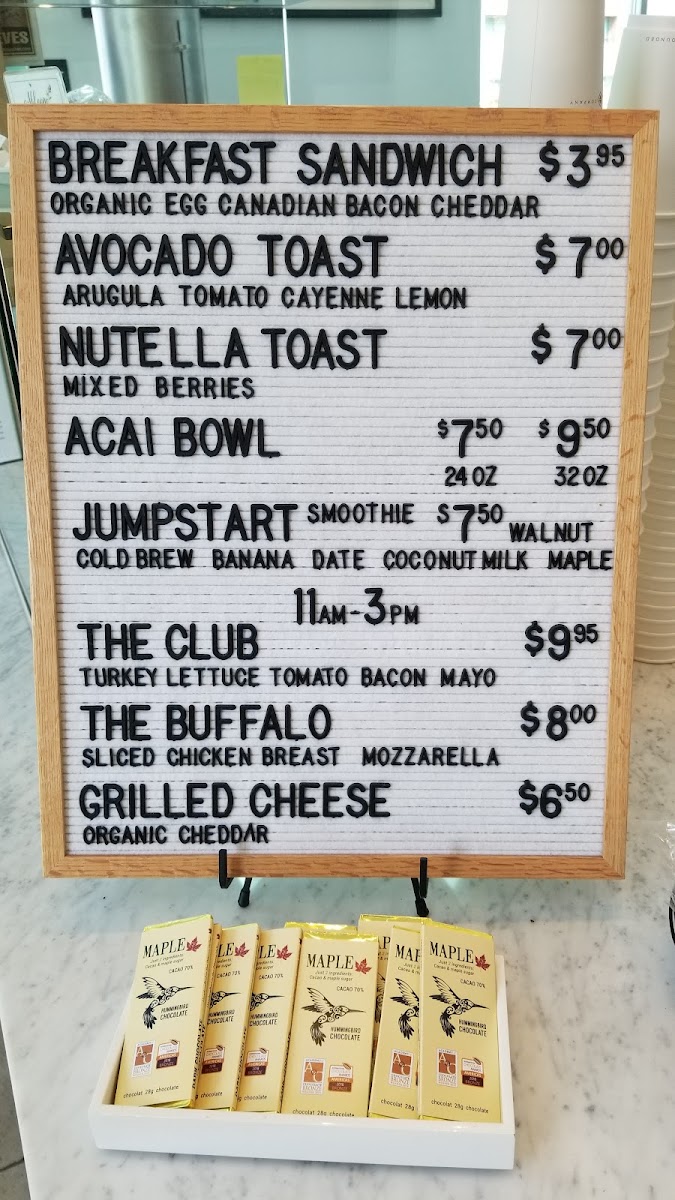 EVES
BREAKFAST SANDWICH $3.95
ORGANIC EGG CANADIAN BACON CHEDDAR
AVOCADO TOAST $7.00
ARUGULA TOMATO CAYENNE LEMON
NUTELLA TOAST $7.00
MIXED BERRIES
ACAI BOWL $7.50 $9.50
24 OZ 32 OZ
JUMPSTART SMOOTHIE $7.50 WALNUT
COLD BREW BANANA DATE COCONUT MILK MAPLE
11AM-3PM
THE CLUB $9.95
TURKEY LETTUCE TOMATO BACON MAYO
THE BUFFALO $8.00
SLICED CHICKEN BREAST MOZZARELLA
GRILLED CHEESE $6.50
ORGANIC CHEDDAR
MAPLE
Just 2 ingredients:
Cacao & maple sugar
CACAO 70%
HUMMINGBIRD
CHOCOLATE
chocolat 28g chocolate
LE
CACAO 70%
LE
CACAO 70%
MAPLE
Just 2 ingredients:
Cacao & maple sugar
CACAO 70%
HUMMINGBIRD
CHOCOLATE
chocolat 28g chocolate
MAP
MAPLE
Just 2 ingredients:
Cacao & maple sugar
CACAO 70%
HUMMINGBIRD
CHOCOLATE
chocolat 28g chocolate